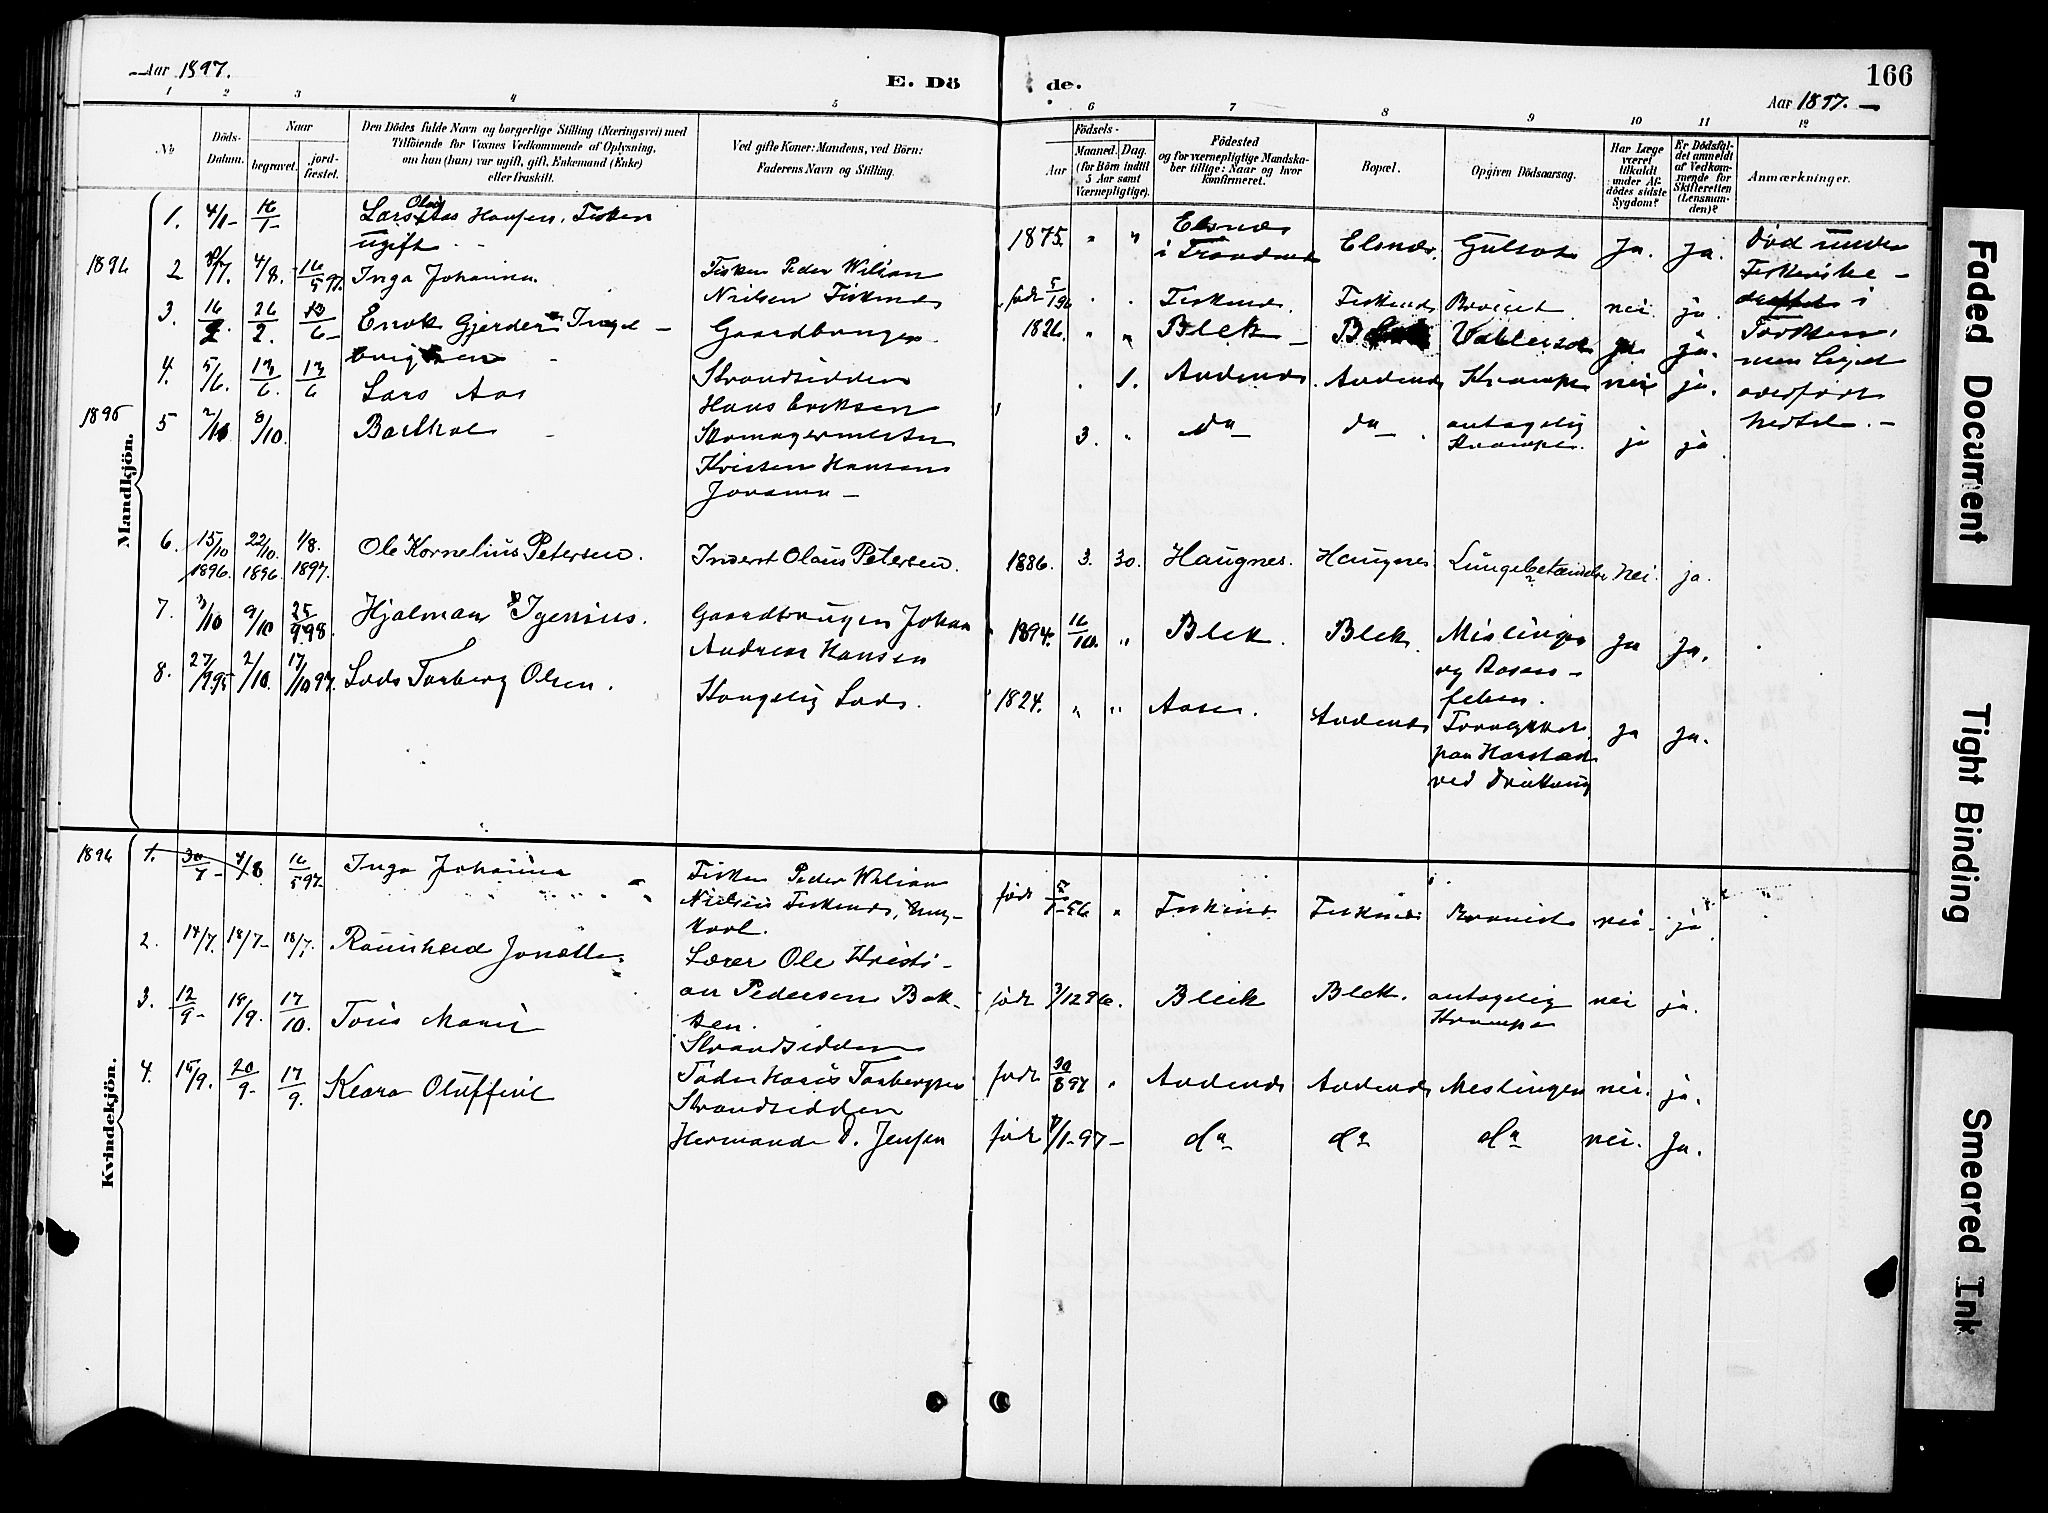 Aar 1897.
E. Döde.
166
Aar 1897. —
1 2 3 4 5 6 7 8 9 10 11 12
No
Döds-Datum.
Naar
begravet.
jord-fæstet.
Den Dödes fulde Navn og borgerlige Stilling (Næringsvei) med
Tilföiende for Voxnes Vedkommende af Oplysning,
om han (hun) var ugift, gift, Enkemand (Enke)
eller fraskilt.
Ved gifte Koner: Mandens, ved Börn:
Faderens Navn og Stilling.
Födsels-
Aar
Maaned.
Dag.
(for Börn indtil
5 Aar samt
Værnepligtige).
Födested
og for værnepligtige Mandska-
ber tillige: Naar og hvor
konfirmeret.
Bopæl.
Opgiven Dödsaarsag.
Har Læge
været
tilkaldt
under Af-
dödes sidste
Sygdom?
Er Dödsfal-
det anmeldt
af Vedkom-
mende for
Skifteretten
(Lensman-
den)?
Anmærkninger.
Mandkjön.
1. 4/1- Lars Olai Aas Hansen, Fisker
ugift
1875. " " i Elsnes. Gulsot Ja. Ja. Død under
1896 2 4/8. 16/5 97. Inga Johanna Fisker Peder Wilian
Nielsen Fiskenes
født 5/1 96 . . Fiskenes. Fiskenes nei. ja.
3. 16/2. 26/2. 13/6- Enok Gjerder Ingel-
brigtsen Gaardbruger
1826. " " Blek Vattersot ja ja.
4. 5/6. 13/6. 13/6 Lars Aas Strandsidder
Hans Eriksen
. 1. Andenes. Andenes Krampe nei ja. men liget
overført
5 2/10 8/10. Barthol Skomagermester
Kristen Hansen
3. " do do antagelig
Krampe. ja ja hertil. —
6. 15/10 1896. 22/10. 1896. 1/8. 1897. Ole Kornelius Petersen. Inderst Olaus Petersen. 1886. 3. 30. Haugnes. Haugnes Lungebetændelse Nei. ja.
7. 3/10 9/10 25/9 98. Hjalmar Igenius. Gaardbruger Johan
Andreas Hansen
1894. 16/10. " Blek. Blek. Mislinger
og
ja Ja.
8. 27/9 95 2/10. 17/10 97. Lods Torberg Olsen. Kongelig Lods. 1824. " " Aase. Andenes
paa Harstad
ved Drukning
Ja Ja.
Kvindekjön.
1896 1. 30/7- 4/8 16/5 97. Inga Johanna Fisker Peder Wilian
Nielsen Fiskenes, Ung-
karl.
født 5/1-96 " Fiskenes Fiskenes nei. ja
2. 14/7. 18/7- 18/7. Ragnhild Jonette Lærer Ole Kristi-
an Pedersen Bak-
ken.
født 3/12 96. Bleik Blek. antagelig
Krampe nei ja.
3. 12/9- 19/9. 17/10. Toris Marie Strandsidder
Torbergsen
født 30/8 97 " Andenes Andenes Meslinger nei. ja.
4. 15/9. 20/9- 17/9. Klara Oluffine Strandsidder
Hermander D. Jensen
født 7/1-97- do do do nei. Ja.
Faded Document
Tight Binding
Smeared Ink